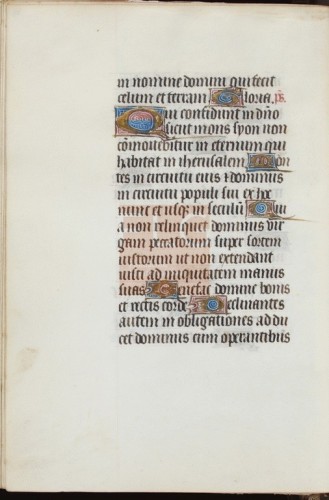 in nomine domini qui fecit
celum et terram. Gloria. ps.
Qui confidunt in dño
sicut mons syon non
cōmovebitur in eternum qui
habitat in iherusalem Mon
tes in circuitu eius et dominus
in circuitu populi sui ex hoc
nunc et usq; in seculū Qui
a non relinquet dominus vir
gam peccatorum super sortem
iustorum ut non extendant
iusti ad iniquitatem manus
suas Benefac domine bonis
et rectis corde Declinantes
autem in obligationes ad du
cet dominus cum operantibus